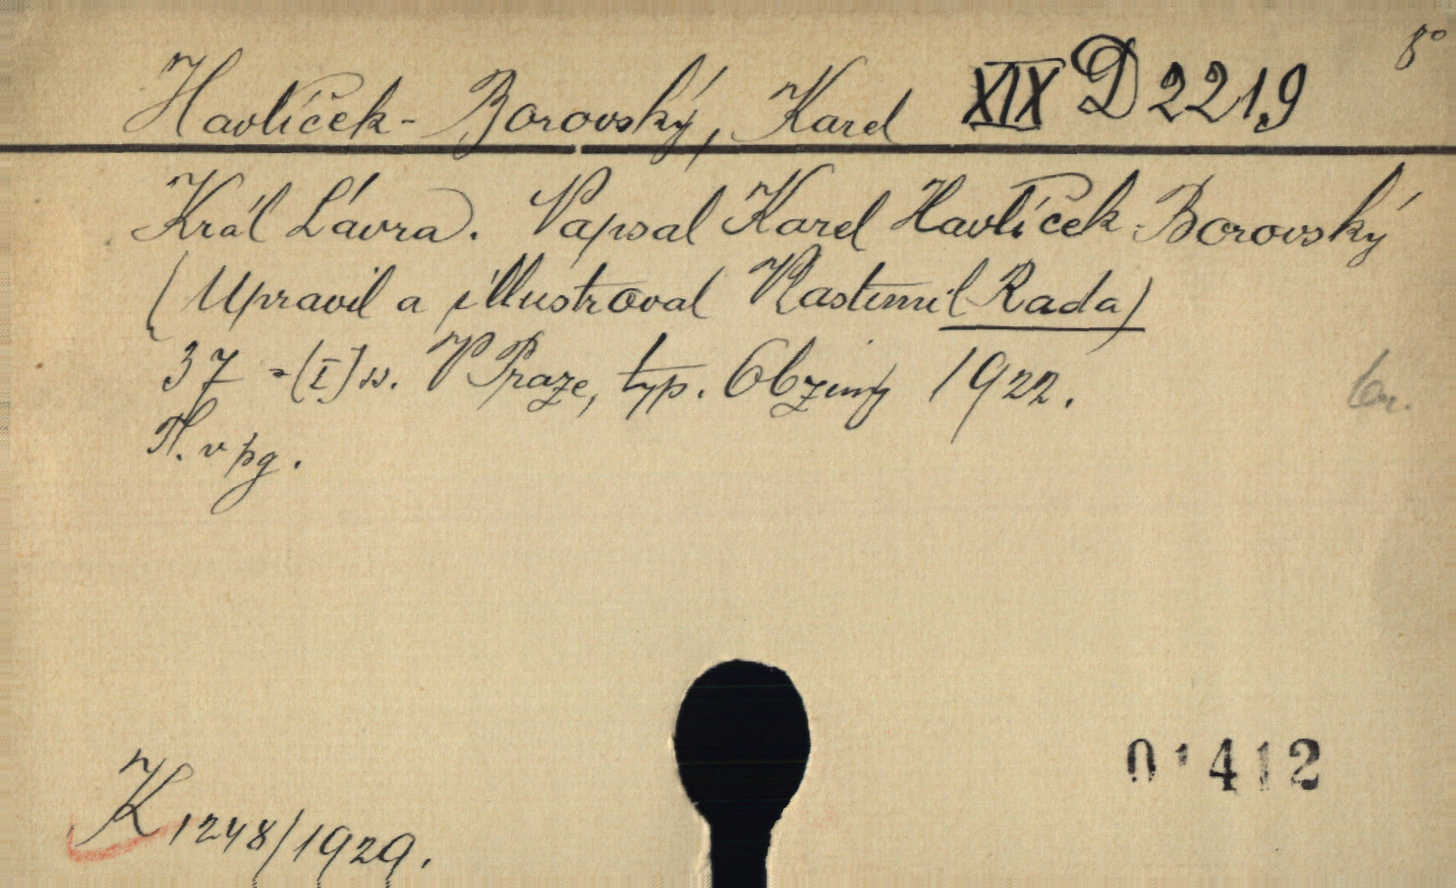 8°
Havlíček-Borovský, Karel XIX D 2219
Král Lávra. Napsal Karel Havlíček Borovský
(Upravil a illustroval Vlastimil Rada)
37 -[I] s. V Praze, typ. Obziny 1922.
Tl. v pg.
01412
K 1248/1929.